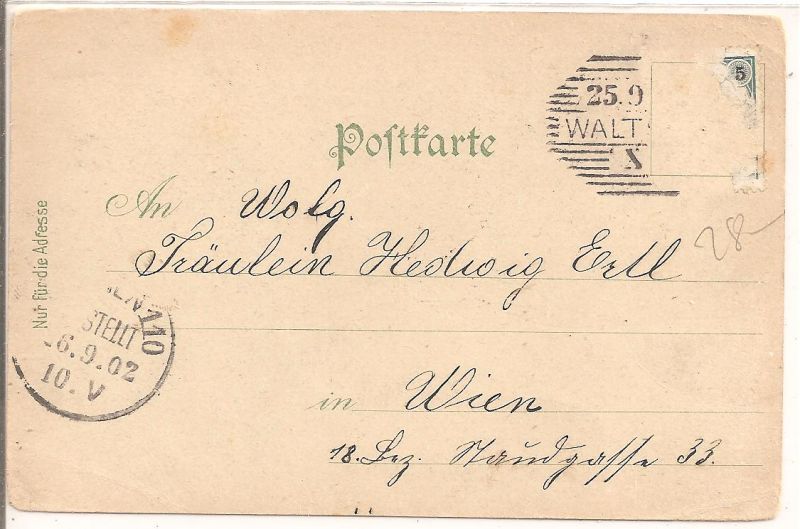 5
25.9
WALT
X
Postkarte
An Wolg.
Fräulein Hedwig Ertl
28-
Nur für die Adresse
EN 110
STELLT
6.9.02
10.V
in Wien
18. Bez. Staudgasse 33.